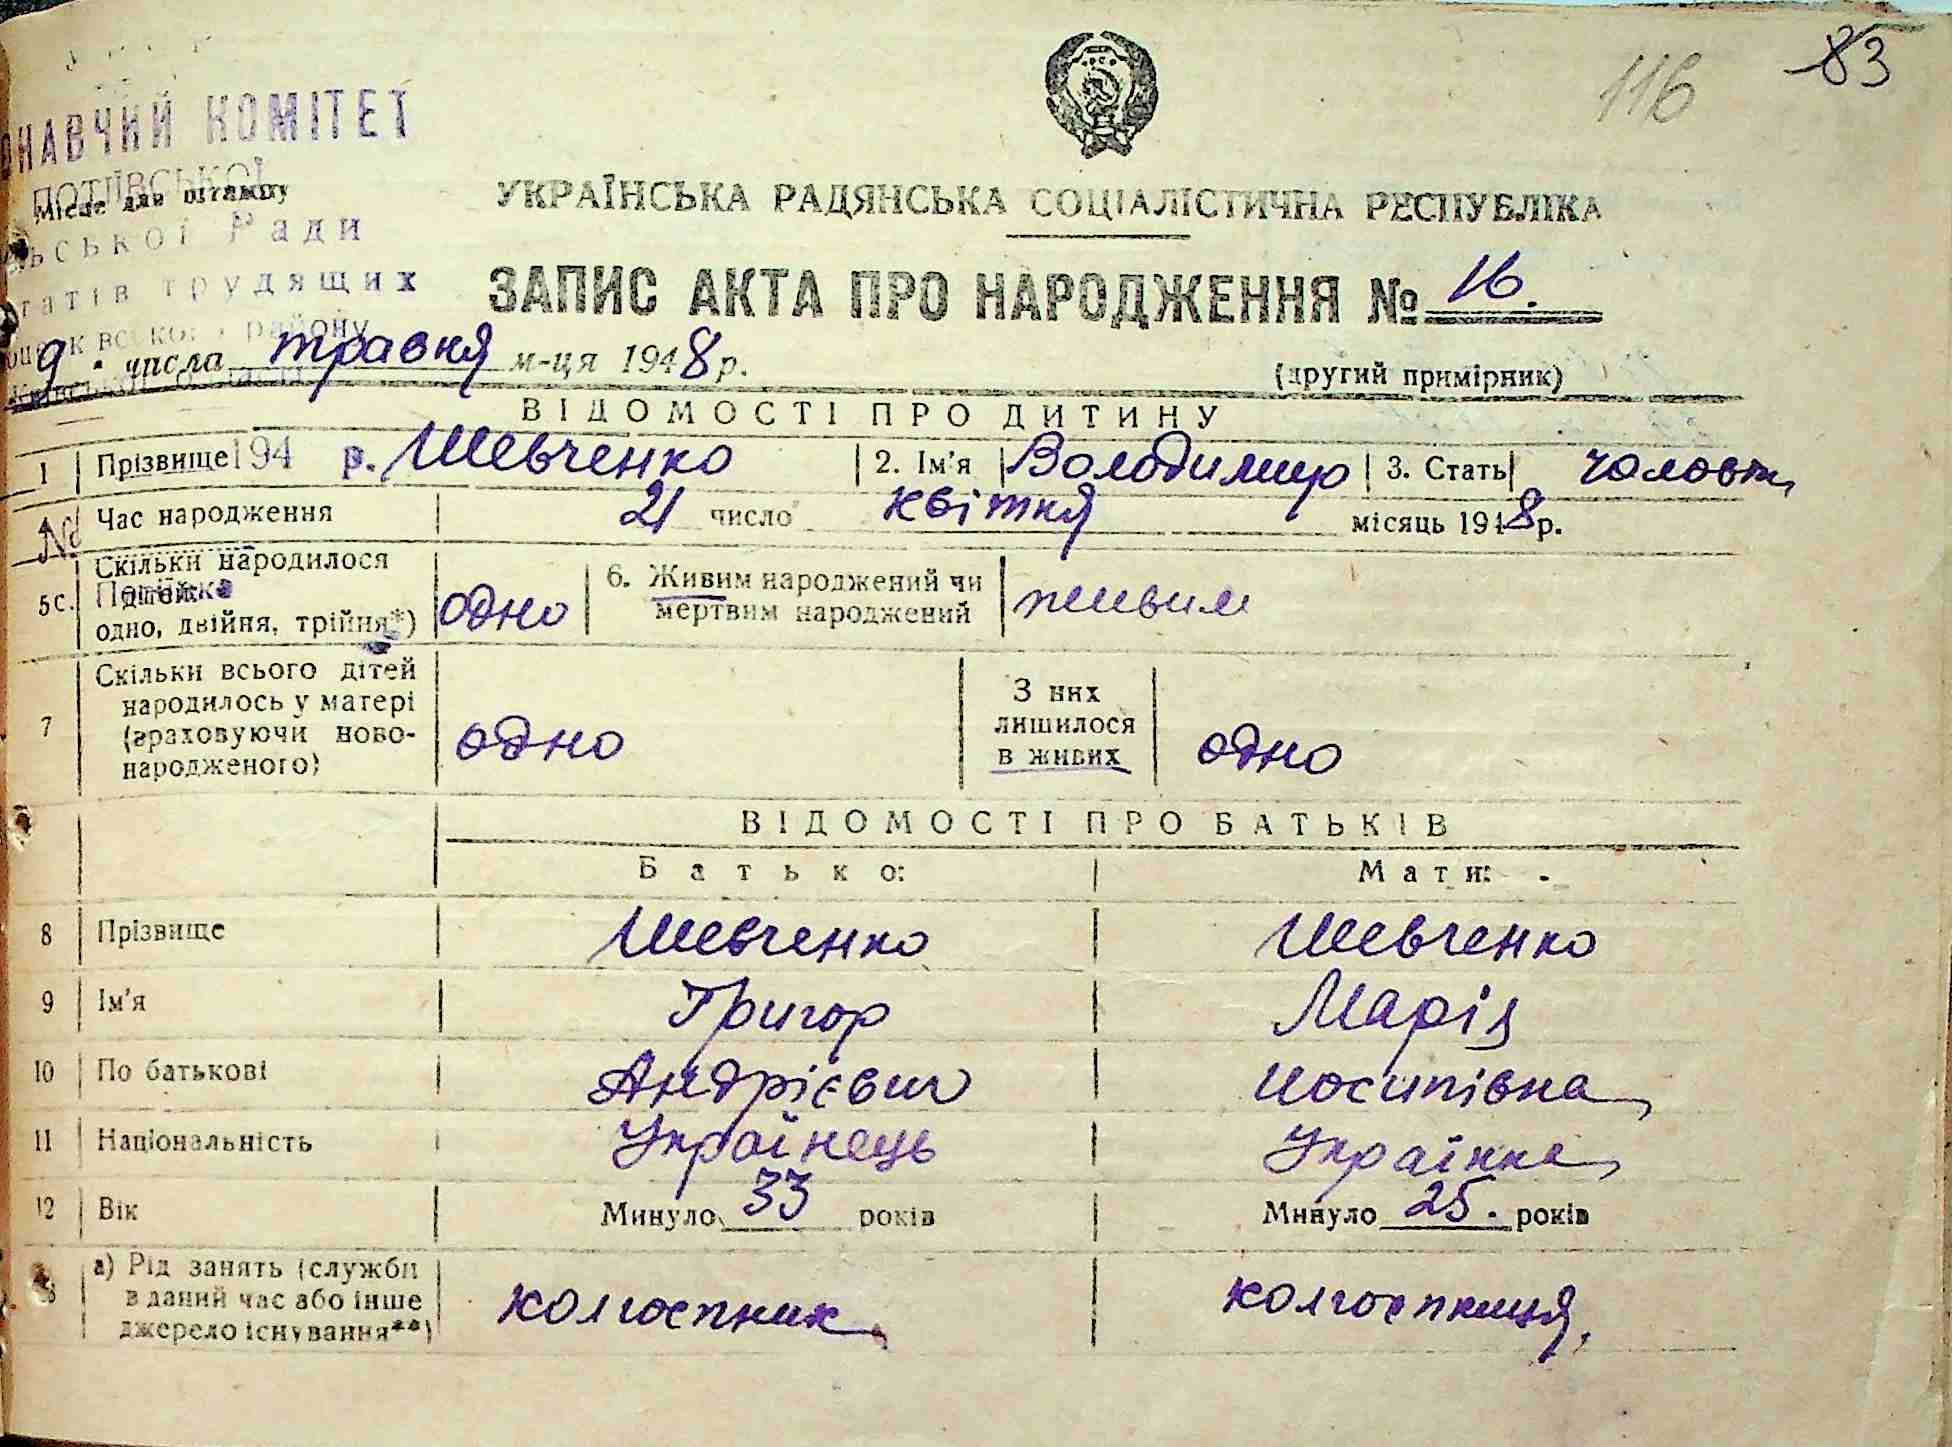 83
116
НАВЧИЙ КОМІТЕТ
ПОТІЇВСЬКОЇ
Місце для штампу
ської Ради
трудящих
району
Київської області
УКРАЇНСЬКА РАДЯНСЬКА СОЦІАЛІСТИЧНА РЕСПУБЛІКА
ЗАПИС АКТА ПРО НАРОДЖЕННЯ № 16.
9 числа травня м-ця 1948 р.
(другий примірник)
ВІДОМОСТІ ПРО ДИТИНУ
1 Прізвище 194 р. Шевченко 2. Ім'я Володимир 3. Стать чоловіч
Час народження 21 число квітня місяць 1948 р.
№
5 с. Скільки народилося дітей: одно, двійня, трійня*) одно 6. Живим народжений чи мертвим народжений живим
7 Скільки всього дітей народилось у матері (враховуючи ново-народженого) одно З них лишилося в живих одно
ВІДОМОСТІ ПРО БАТЬКІВ
Батько: Мати:
8 Прізвище Шевченко Шевченко
9 Ім'я Григор Марія
10 По батькові Андрієвич Иосипівна
11 Національність Українець Українка
12 Вік Минуло 33 років Минуло 25. років
а) Рід занять (служби в даний час або інше джерело існування**) колгоспник колгоспниця,